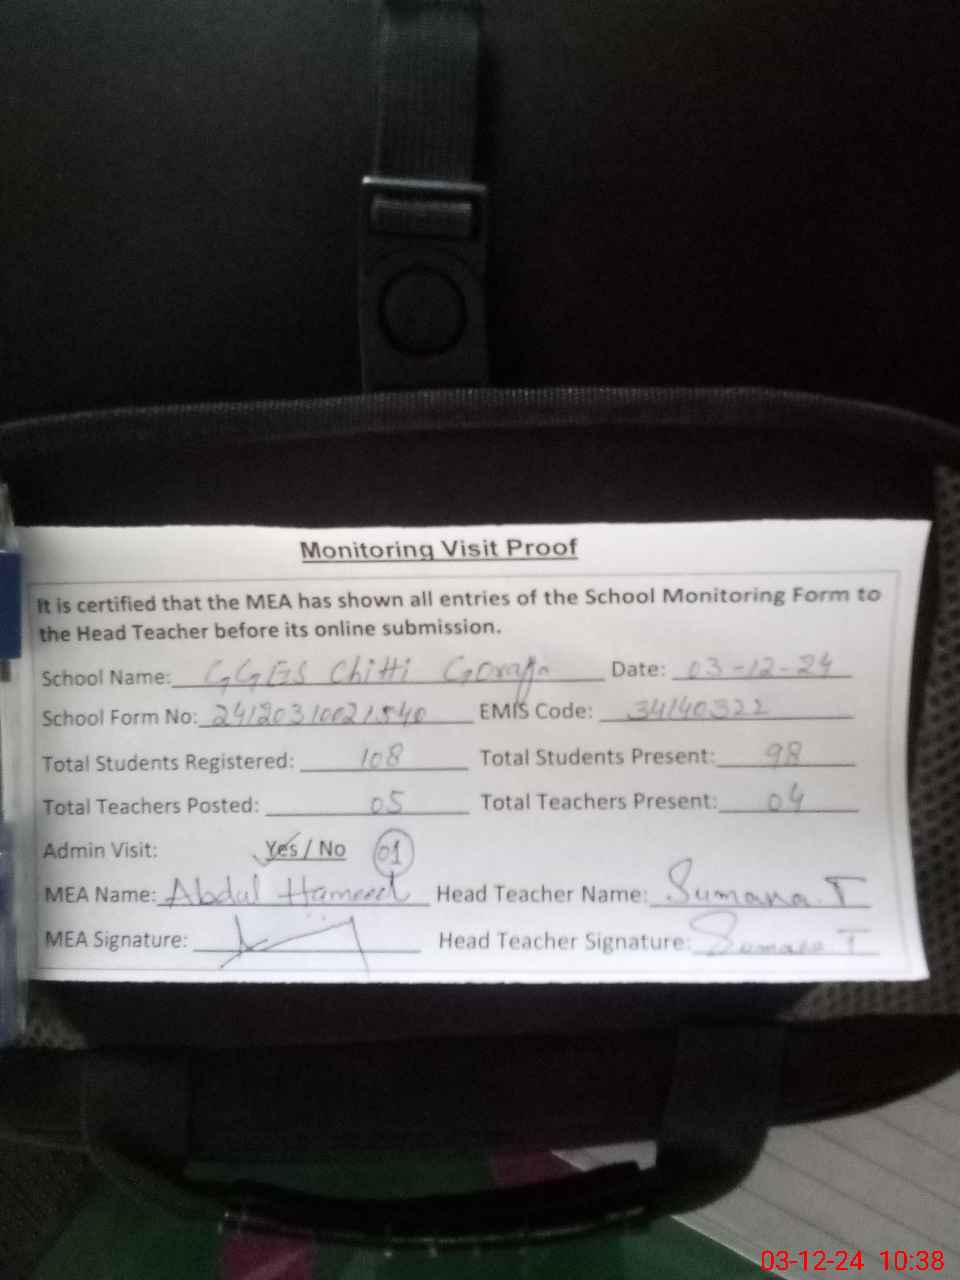 Monitoring Visit Proof
It is certified that the MEA has shown all entries of the School Monitoring Form to
the Head Teacher before its online submission.
School Name: GGES Chitti Goraya Date: 03-12-24
School Form No: 24120310021540 EMIS Code: 34140322
Total Students Registered: 108 Total Students Present: 98
Total Teachers Posted: 05 Total Teachers Present: 04
Admin Visit: Yes / No 01
MEA Name: Abdul Hameed Head Teacher Name: Sumana.T
MEA Signature: Head Teacher Signature: Sumana T
03-12-24 10:38